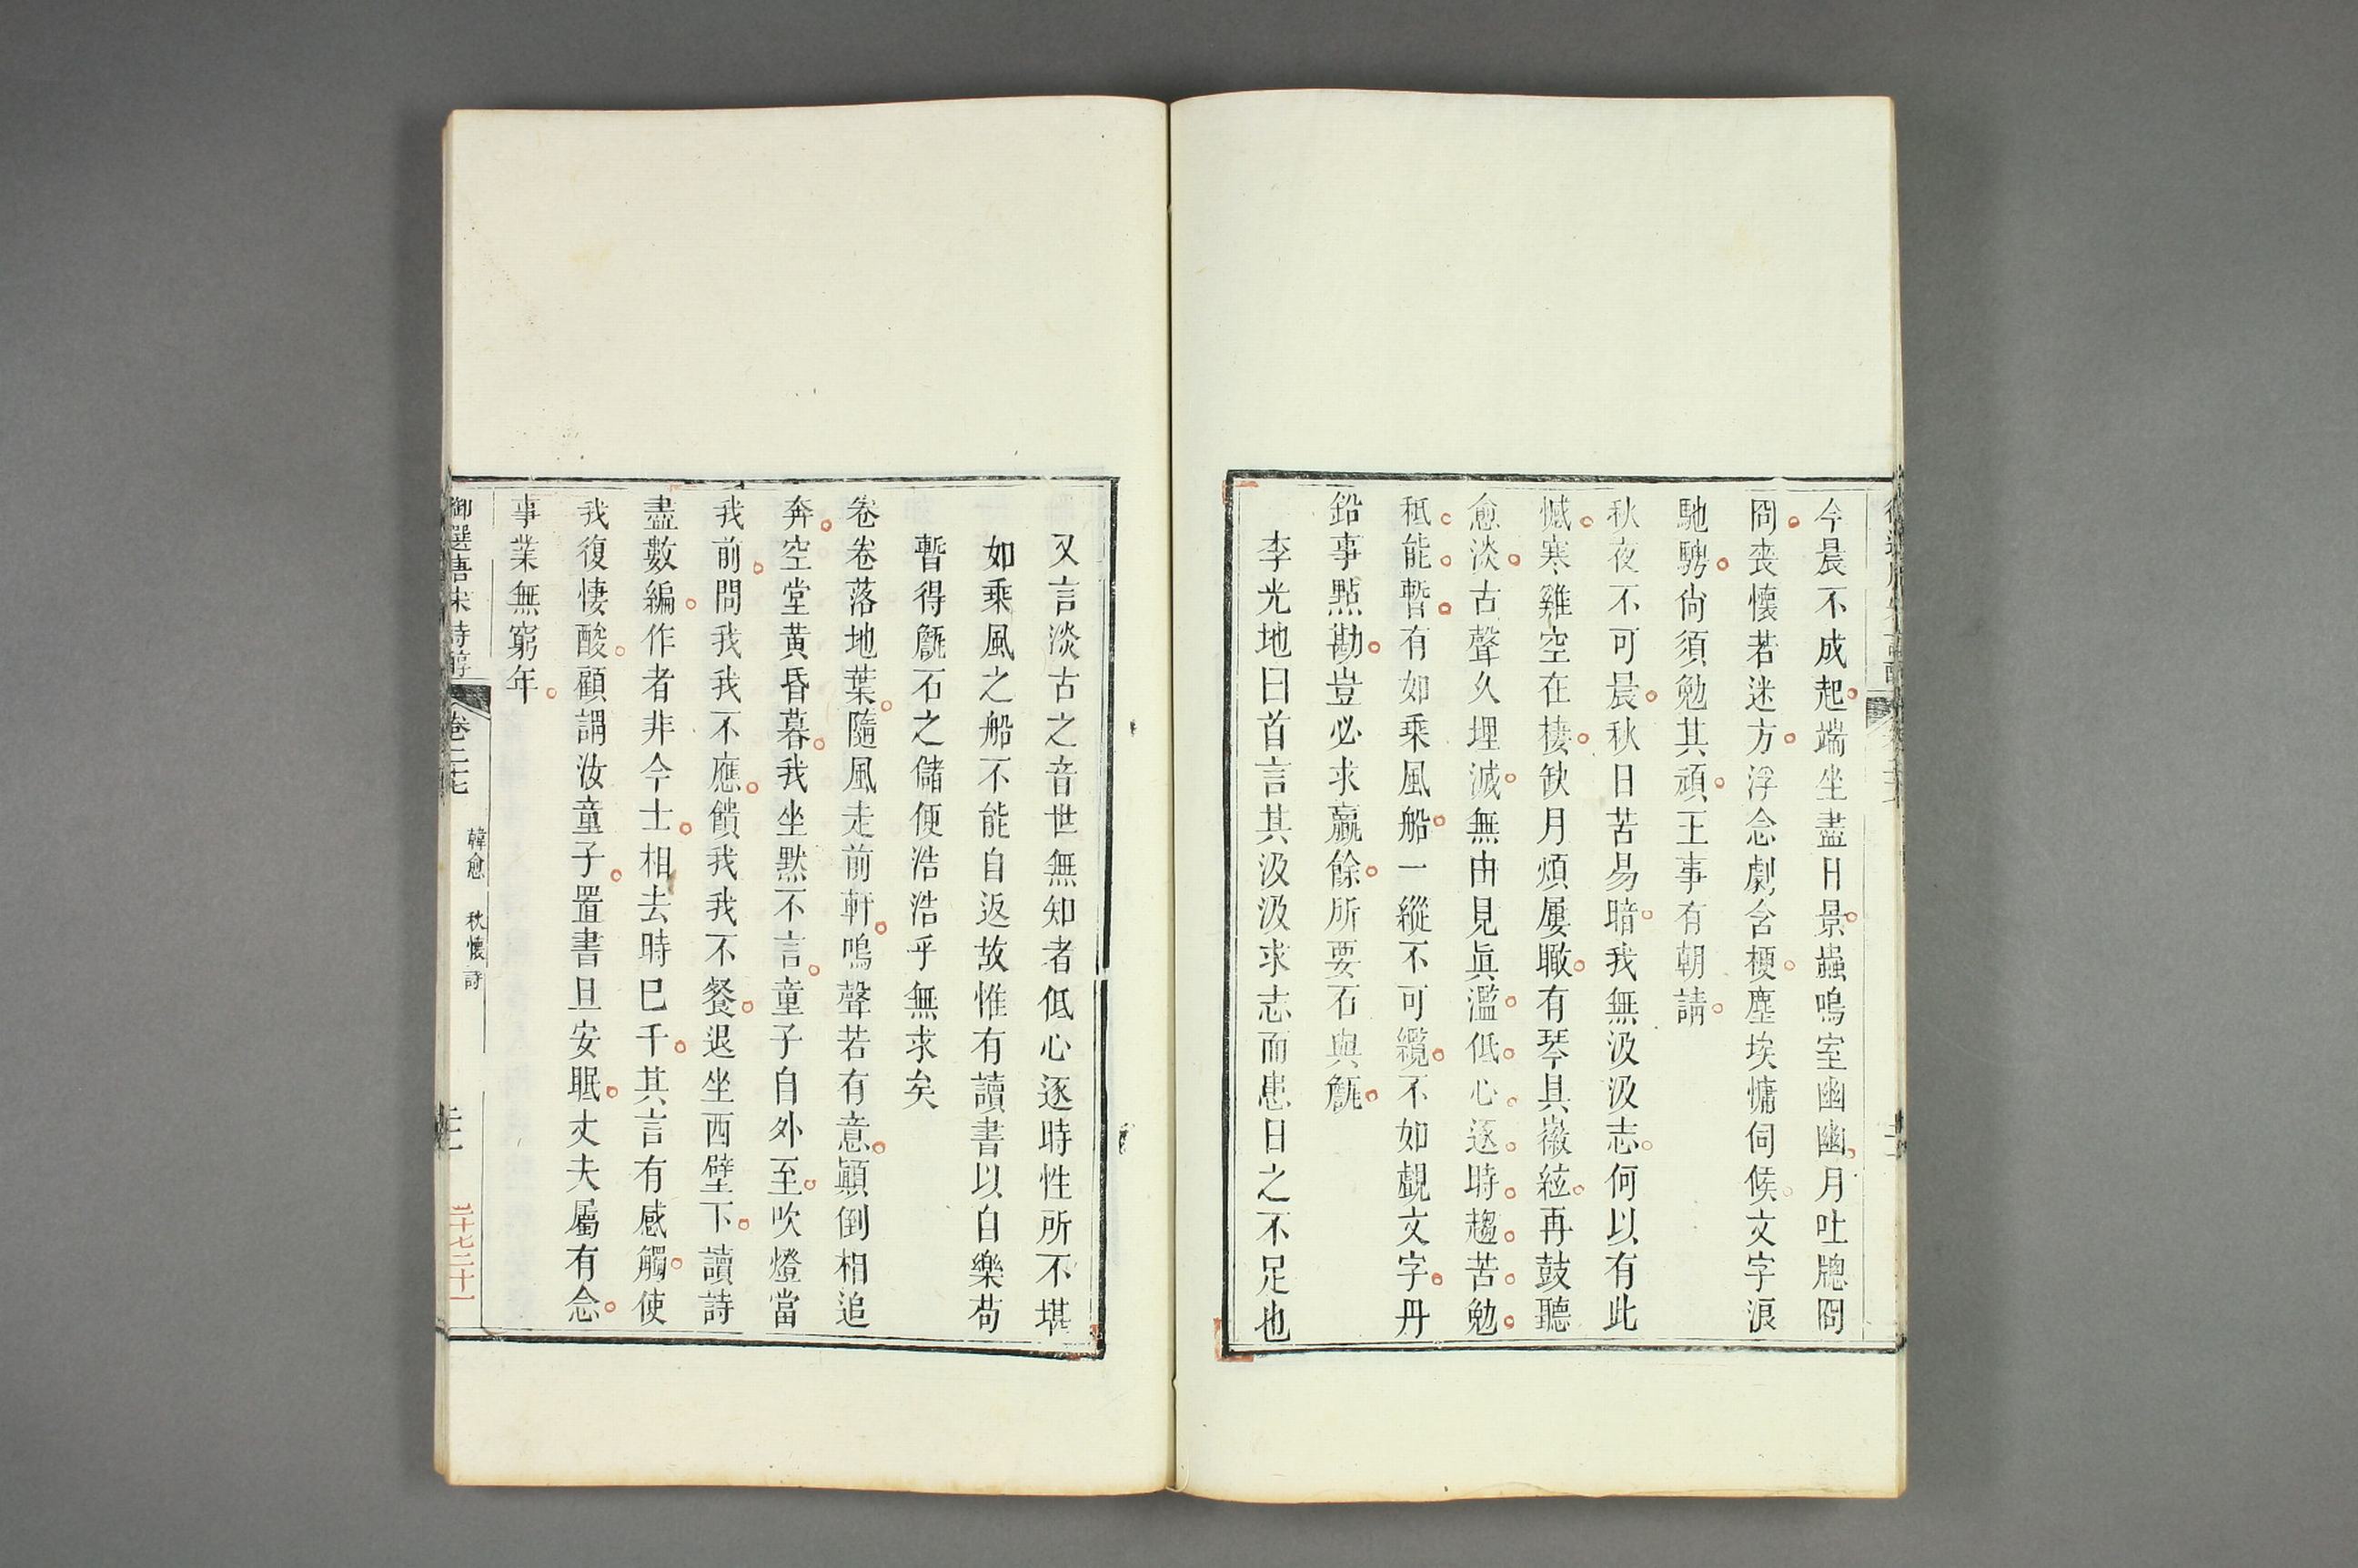 今晨不成起端坐盡日景蟲鳴室幽幽月吐牕冏
冏喪懷若迷方浮念劇含梗塵埃慵伺候文字浪
馳騁尙須勉其頑王事有朝請
秋夜不可晨秋日苦易暗我無汲汲志何以有此
憾寒雞空在棲缺月煩屢瞰有琴具徽絃再鼓聽
愈淡古聲久埋滅無由見眞濫低心逐時趨苦勉
秪能暫有如乘風船一縱不可纜不如覷文字丹
鉛事點勘豈必求贏餘所要石與甔
李光地曰首言其汲汲求志而患日之不足也
又言淡古之音世無知者低心逐時性所不堪
如乘風之船不能自返故惟有讀書以自樂苟
暫得甔石之儲便浩浩乎無求矣
卷卷落地葉隨風走前軒鳴聲若有意顚倒相追
奔空堂黃昏暮我坐默不言童子自外至吹燈當
我前問我我不應饋我我不餐退坐西壁下讀詩
盡數編作者非今士相去時已千其言有感觸使
我復悽酸顧謂汝童子置書且安眠丈夫屬有念
事業無窮年
御選唐宋詩醇 卷二十七 韓愈 秋懷詩 二十一
二十七 二十一